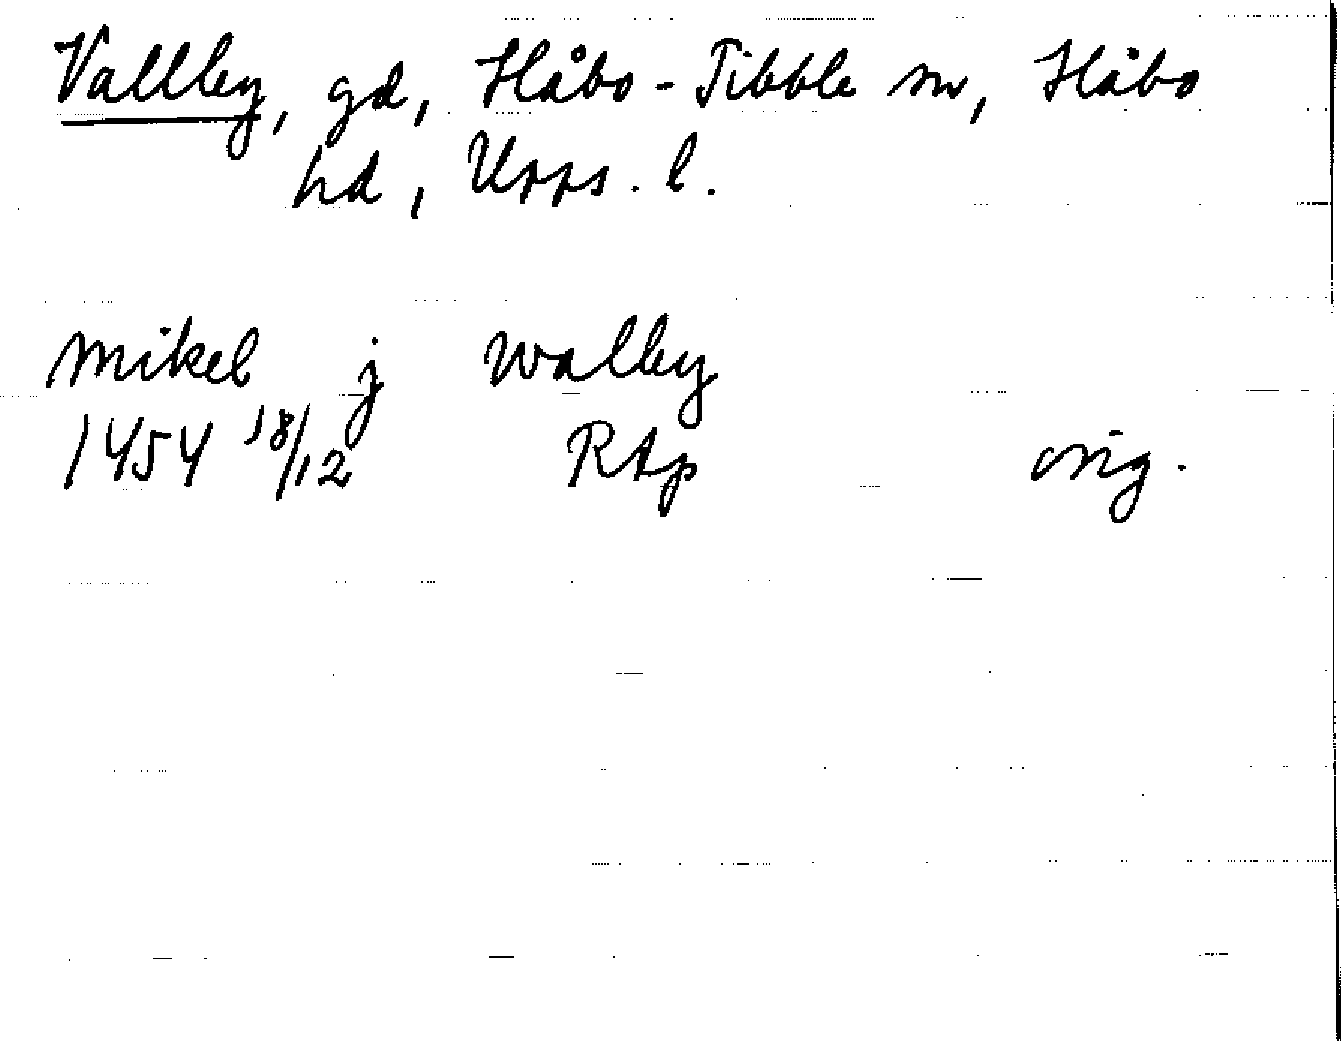 Vallby, gd, Håbo-Tibble sn, Håbo
hd, Upps. l.
Mikel j Walby
1454 18/12 RAp orig.